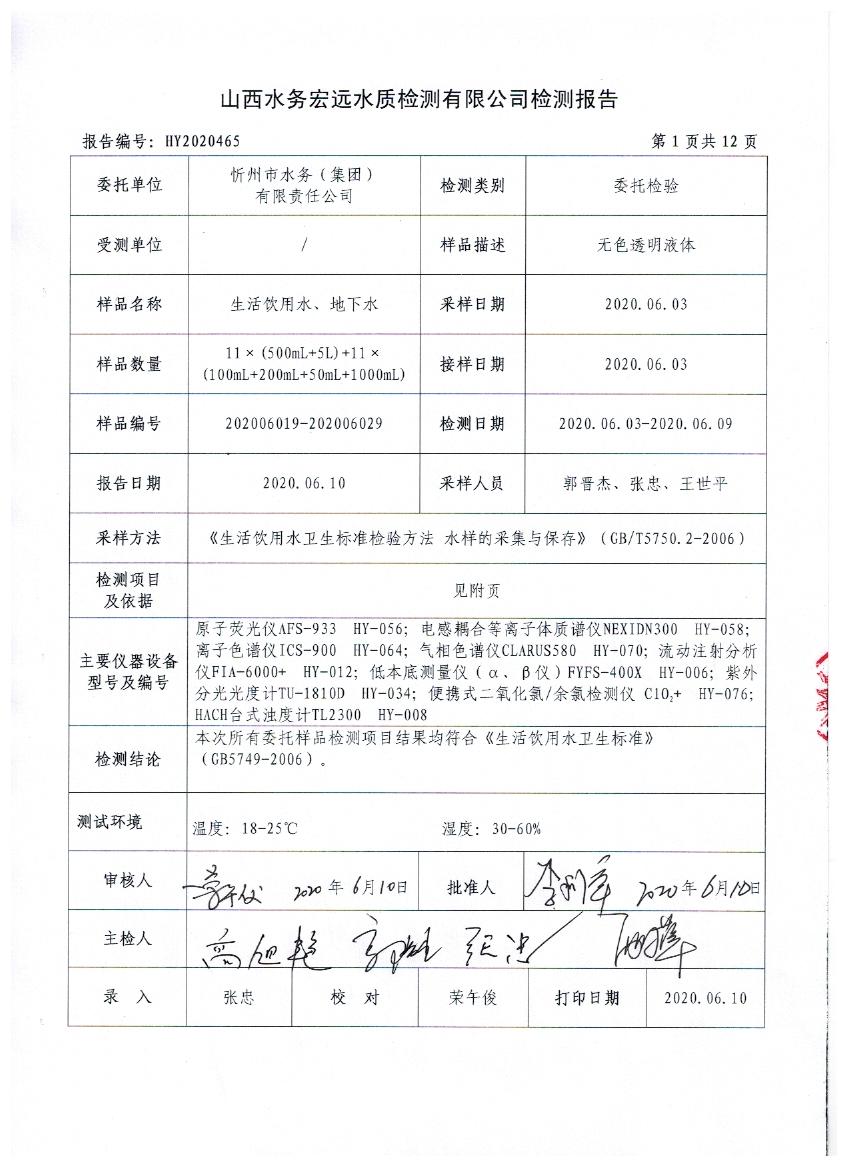 山西水务宏远水质检测有限公司检测报告
报告编号: HY2020465 第 1 页共 12 页
委托单位 忻州市水务（集团）有限责任公司 检测类别 委托检验
受测单位 / 样品描述 无色透明液体
样品名称 生活饮用水、地下水 采样日期 2020.06.03
样品数量 11×(500mL+5L)+11×(100mL+200mL+50mL+1000mL) 接样日期 2020.06.03
样品编号 202006019-202006029 检测日期 2020.06.03-2020.06.09
报告日期 2020.06.10 采样人员 郭晋杰、张忠、王世平
采样方法 《生活饮用水卫生标准检验方法 水样的采集与保存》（GB/T5750.2-2006）
检测项目及依据 见附页
主要仪器设备型号及编号
原子荧光仪AFS-933 HY-056; 电感耦合等离子体质谱仪NEXIDN300 HY-058;
离子色谱仪ICS-900 HY-064; 气相色谱仪CLARUS580 HY-070; 流动注射分析
仪FIA-6000+ HY-012; 低本底测量仪（α、β仪）FYFS-400X HY-006; 紫外
分光光度计TU-1810D HY-034; 便携式二氧化氯/余氯检测仪 ClO₂+ HY-076;
HACH台式浊度计TL2300 HY-008
检测结论 本次所有委托样品检测项目结果均符合《生活饮用水卫生标准》
（GB5749-2006）。
测试环境 温度: 18-25℃ 湿度: 30-60%
审核人 2020年6月10日 批准人 2020年6月10日
主检人 高旭艳 张忠
录 入 张忠 校 对 荣午俊 打印日期 2020.06.10